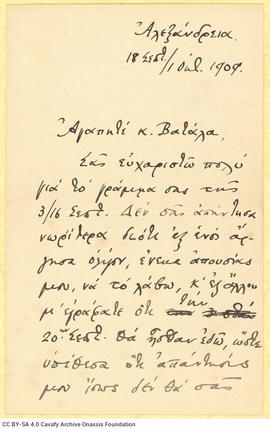 Ἀλεξάνδρεια.
18 Σεπτ./1 Ὀκτ. 1909.
Ἀγαπητέ κ. Βατάλα,
Σᾶς εὐχαριστῶ πολύ
γιά τό γράμμα σας τῆς
3/16 Σεπτ. Δέν σᾶς ἀπήντησα
νωρίτερα διότι ἐξ ἑνός ἄρ-
γησα ὀλίγον, ἕνεκα ἀπουσίας
μου, νά τό λάβω, κ' ἐξ ἄλλου
μ' ἐγράφατε ὅτι τήν
20ην Σεπτ. θά ἤσθαν ἐδῶ, ὥστε
ὑπέθεσα ὅτι ἀπάντησίς
μου ἴσως δέν θά σᾶς
CC BY-SA 4.0 Cavafy Archive Onassis Foundation